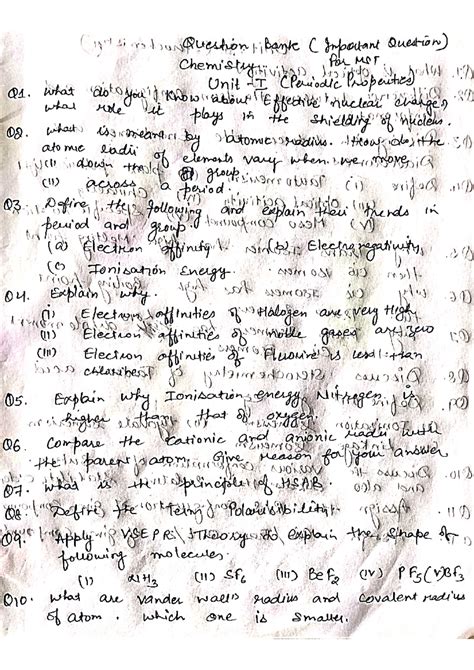 Question Bank (Important Question)
Chemistry. For MST
Unit - I (Periodic Properties)
Q1. What do you know about Effective nuclear charge,
what role it plays in the shielding of nucleus.
Q2. what is meant by atomic radius. How do the
atomic radii of elements vary when we move
(i) down the group
(ii) across a period.
Q3. Define the following and explain their trends in
period and group.
(a) Electron affinity (b) Electronegativity
(c) Ionisation Energy.
Q4. Explain why.
(i) Electron affinities of Halogen are very High
(ii) Electron affinities of noble gases are zero
(iii) Electron affinities of Fluorine is less than
Q5. Explain why Ionisation energy Nitrogen is
higher than that of oxygen.
Q6. Compare the cationic and anionic radii with
the parent atom. Give reason for your answer
Q7. what is the principle of HSAB.
Q8. Define the term Polarisibility.
Q9. Apply VSEPR theory to explain the shape of
following molecules.
(i) (ii) SF6 (iii) BeF2 (iv) PF5 (v) BF3
Q10. What are vander walls radius and covalent radius
of atom. which one is smaller.